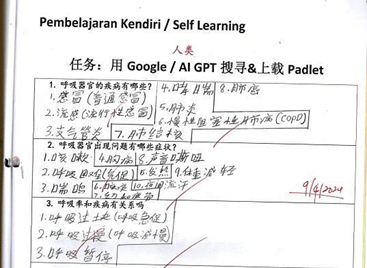 Pembelajaran Kendiri / Self Learning
人类
任务：用 Google / AI GPT 搜寻&上载 Padlet
1. 呼吸器官的疾病有哪些？ 4.哮喘 8.肺癌
1.感冒（普通感冒） 5.肺炎
2.流感（流行性感冒） 6.慢性阻塞性肺病（COPD）
3.支气管炎 7.肺结核
2. 呼吸器官出现问题有哪些症状？
1.咳嗽 4.胸痛 8.声音嘶哑
2.呼吸困难（气促） 5.发热 9.体重减轻
3.喘鸣
9/4/2024
3. 呼吸率和疾病有关系吗
1.呼吸过快（呼吸急促）
2.呼吸过慢（呼吸减慢）
3.呼吸暂停